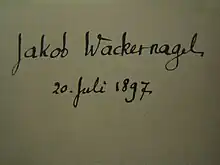 Jakob Wackernagel
20. Juli 1897